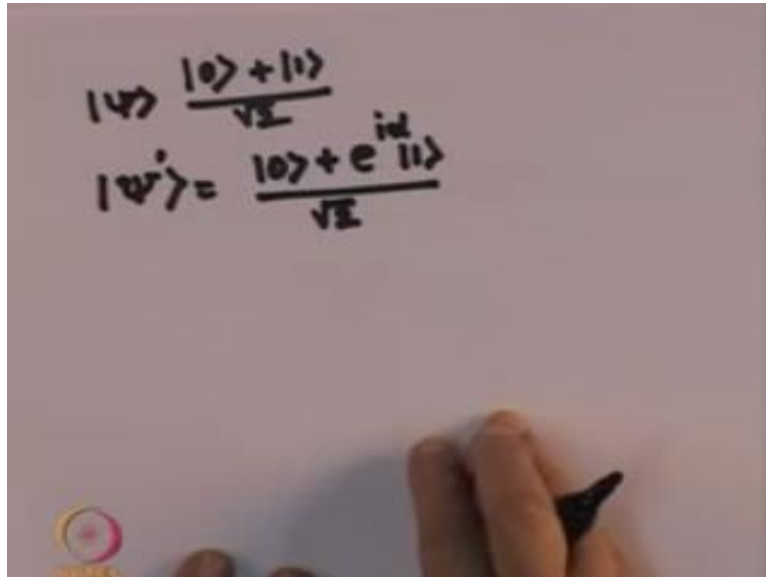 |ψ⟩ |0⟩ + |1⟩ / √2
|ψ'⟩ = |0⟩ + e^{iα} |1⟩ / √2